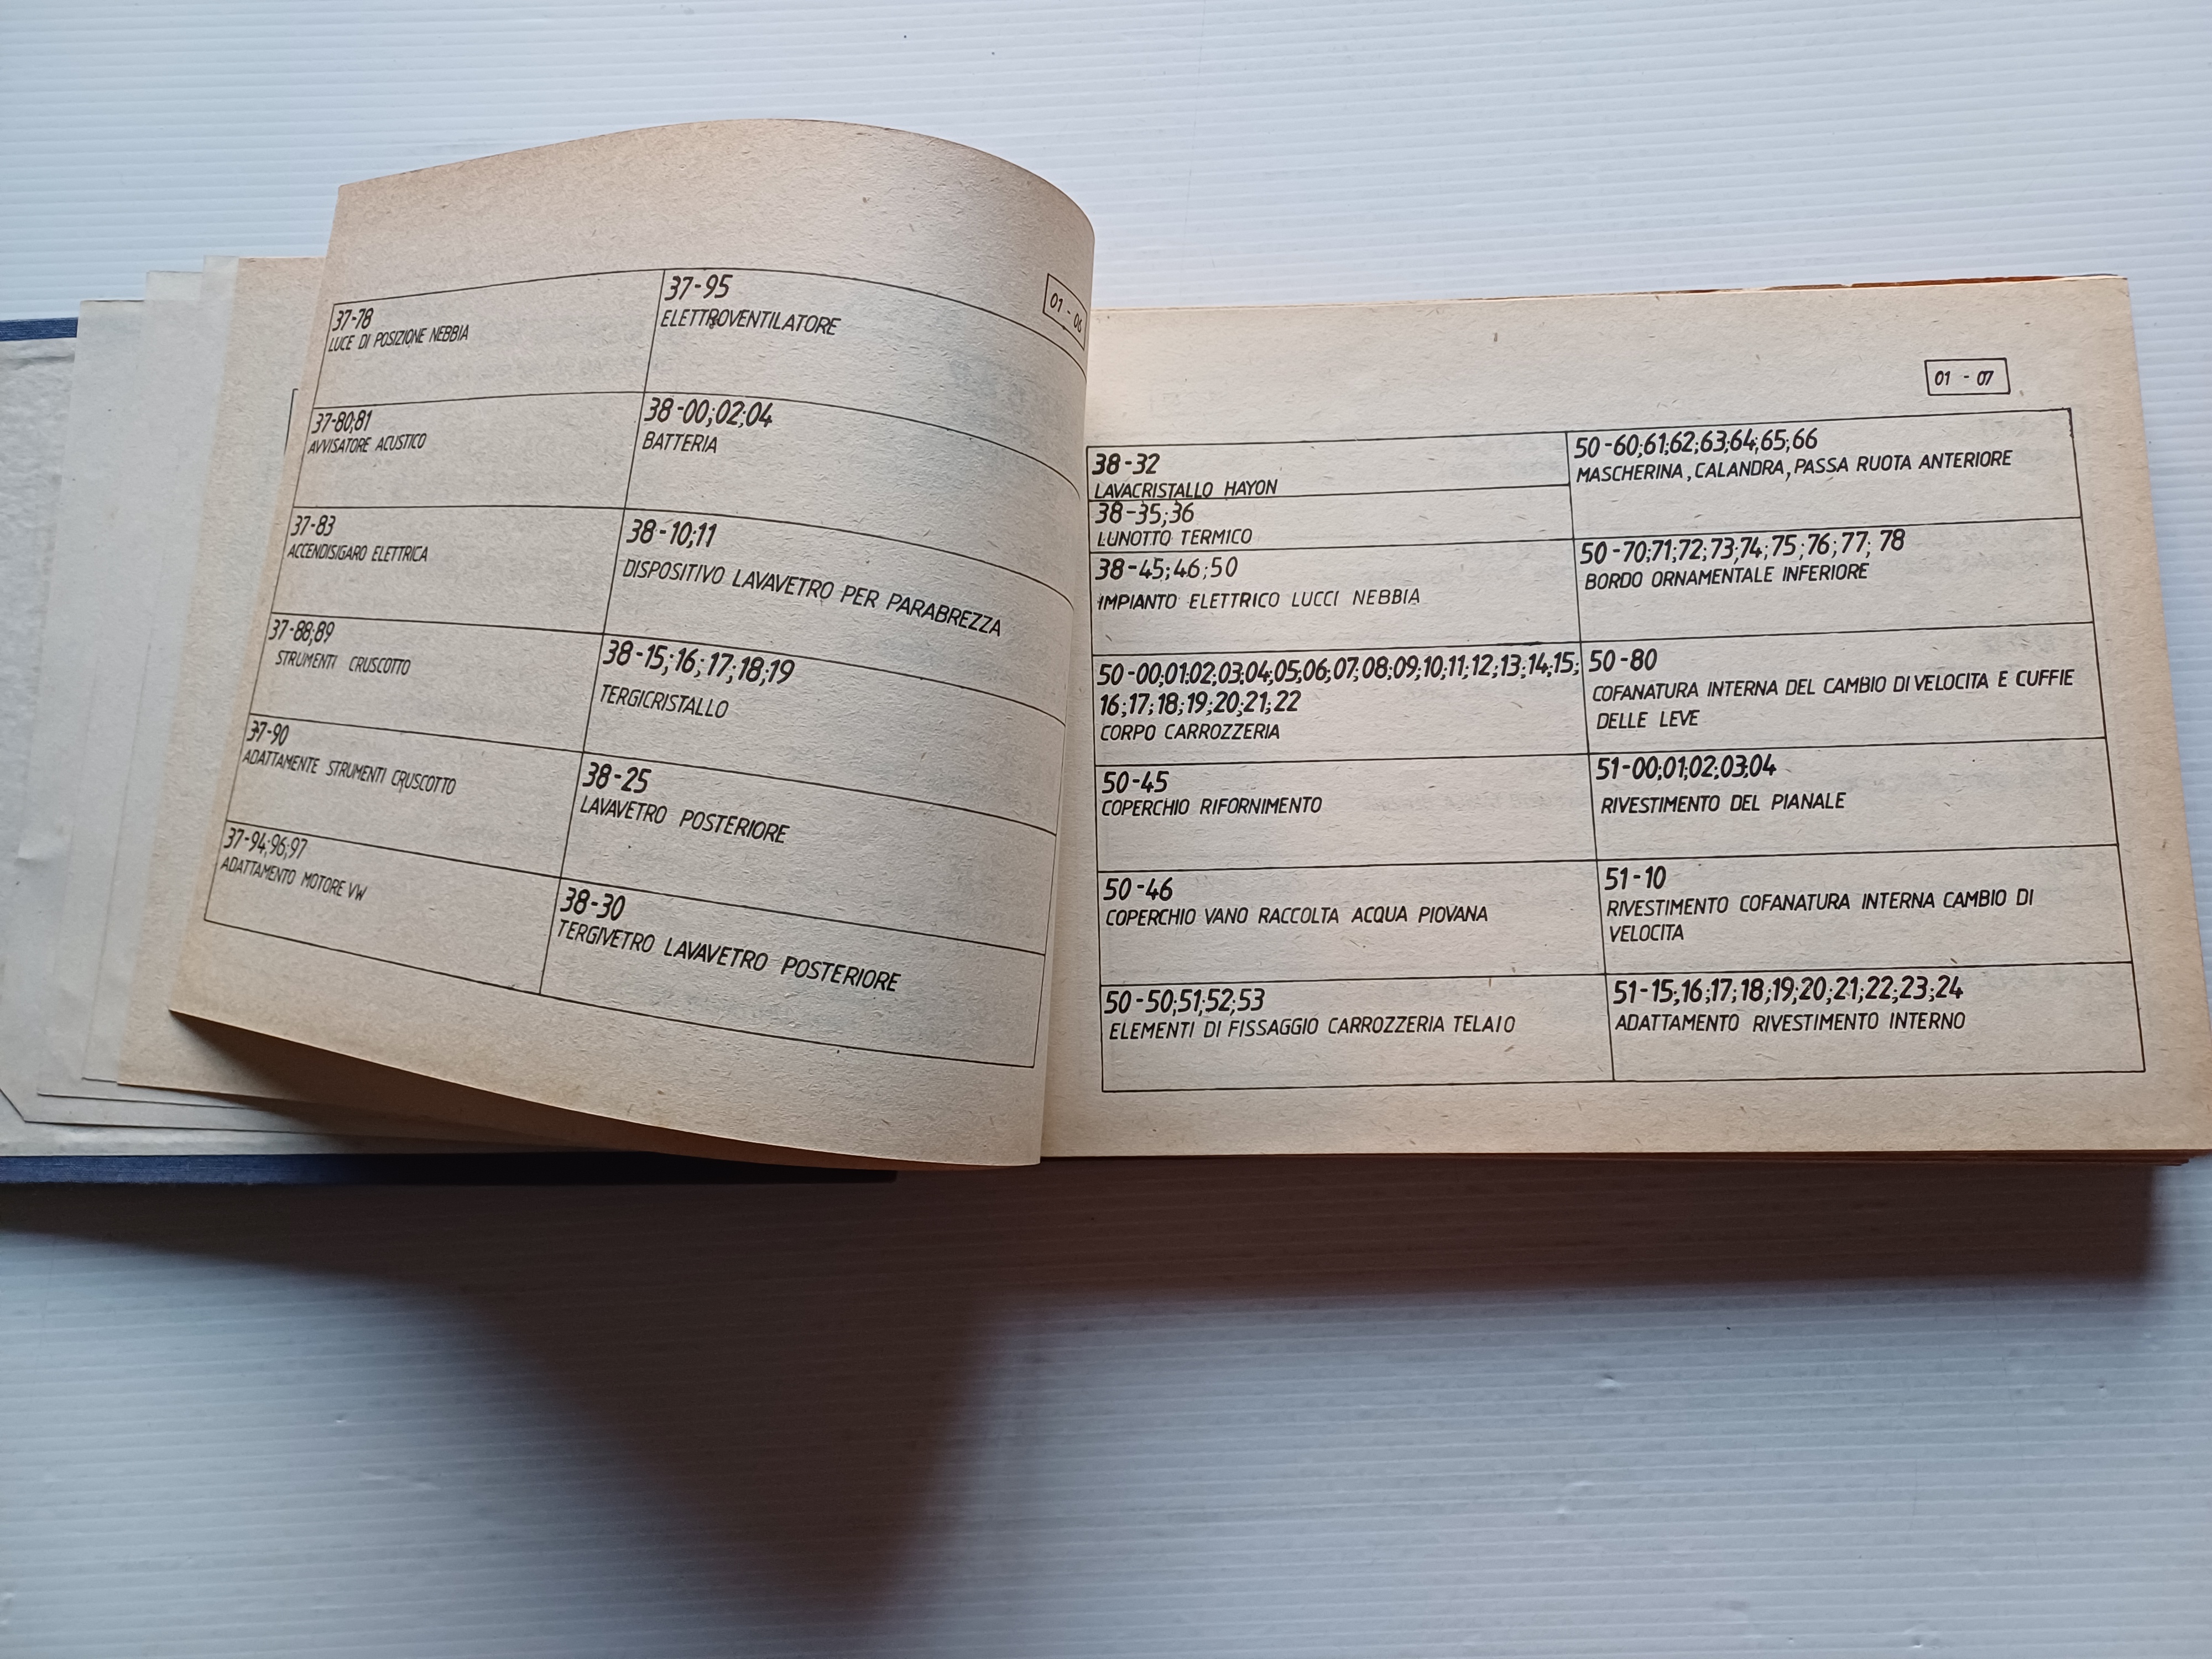 01 - 06
37-78
LUCE DI POSIZIONE NEBBIA
37-80;81
AVVISATORE ACUSTICO
37-83
ACCENDISIGARO ELETTRICA
37-88;89
STRUMENTI CRUSCOTTO
37-90
ADATTAMENTE STRUMENTI CRUSCOTTO
37-94;96;97
ADATTAMENTO MOTORE VW
37-95
ELETTROVENTILATORE
38-00;02;04
BATTERIA
38-10;11
DISPOSITIVO LAVAVETRO PER PARABREZZA
38-15;16;17;18;19
TERGICRISTALLO
38-25
LAVAVETRO POSTERIORE
38-30
TERGIVETRO LAVAVETRO POSTERIORE
01 - 07
38-32
LAVACRISTALLO HAYON
38-35;36
LUNOTTO TERMICO
38-45;46;50
IMPIANTO ELETTRICO LUCCI NEBBIA
50-00;01;02;03;04;05;06;07;08;09;10;11;12;13;14;15;
16;17;18;19;20;21;22
CORPO CARROZZERIA
50-45
COPERCHIO RIFORNIMENTO
50-46
COPERCHIO VANO RACCOLTA ACQUA PIOVANA
50-50;51;52;53
ELEMENTI DI FISSAGGIO CARROZZERIA TELAIO
50-60;61;62;63;64;65;66
MASCHERINA, CALANDRA, PASSA RUOTA ANTERIORE
50-70;71;72;73;74;75;76;77;78
BORDO ORNAMENTALE INFERIORE
50-80
COFANATURA INTERNA DEL CAMBIO DI VELOCITA E CUFFIE
DELLE LEVE
51-00;01;02;03;04
RIVESTIMENTO DEL PIANALE
51-10
RIVESTIMENTO COFANATURA INTERNA CAMBIO DI
VELOCITA
51-15;16;17;18;19;20;21;22;23;24
ADATTAMENTO RIVESTIMENTO INTERNO